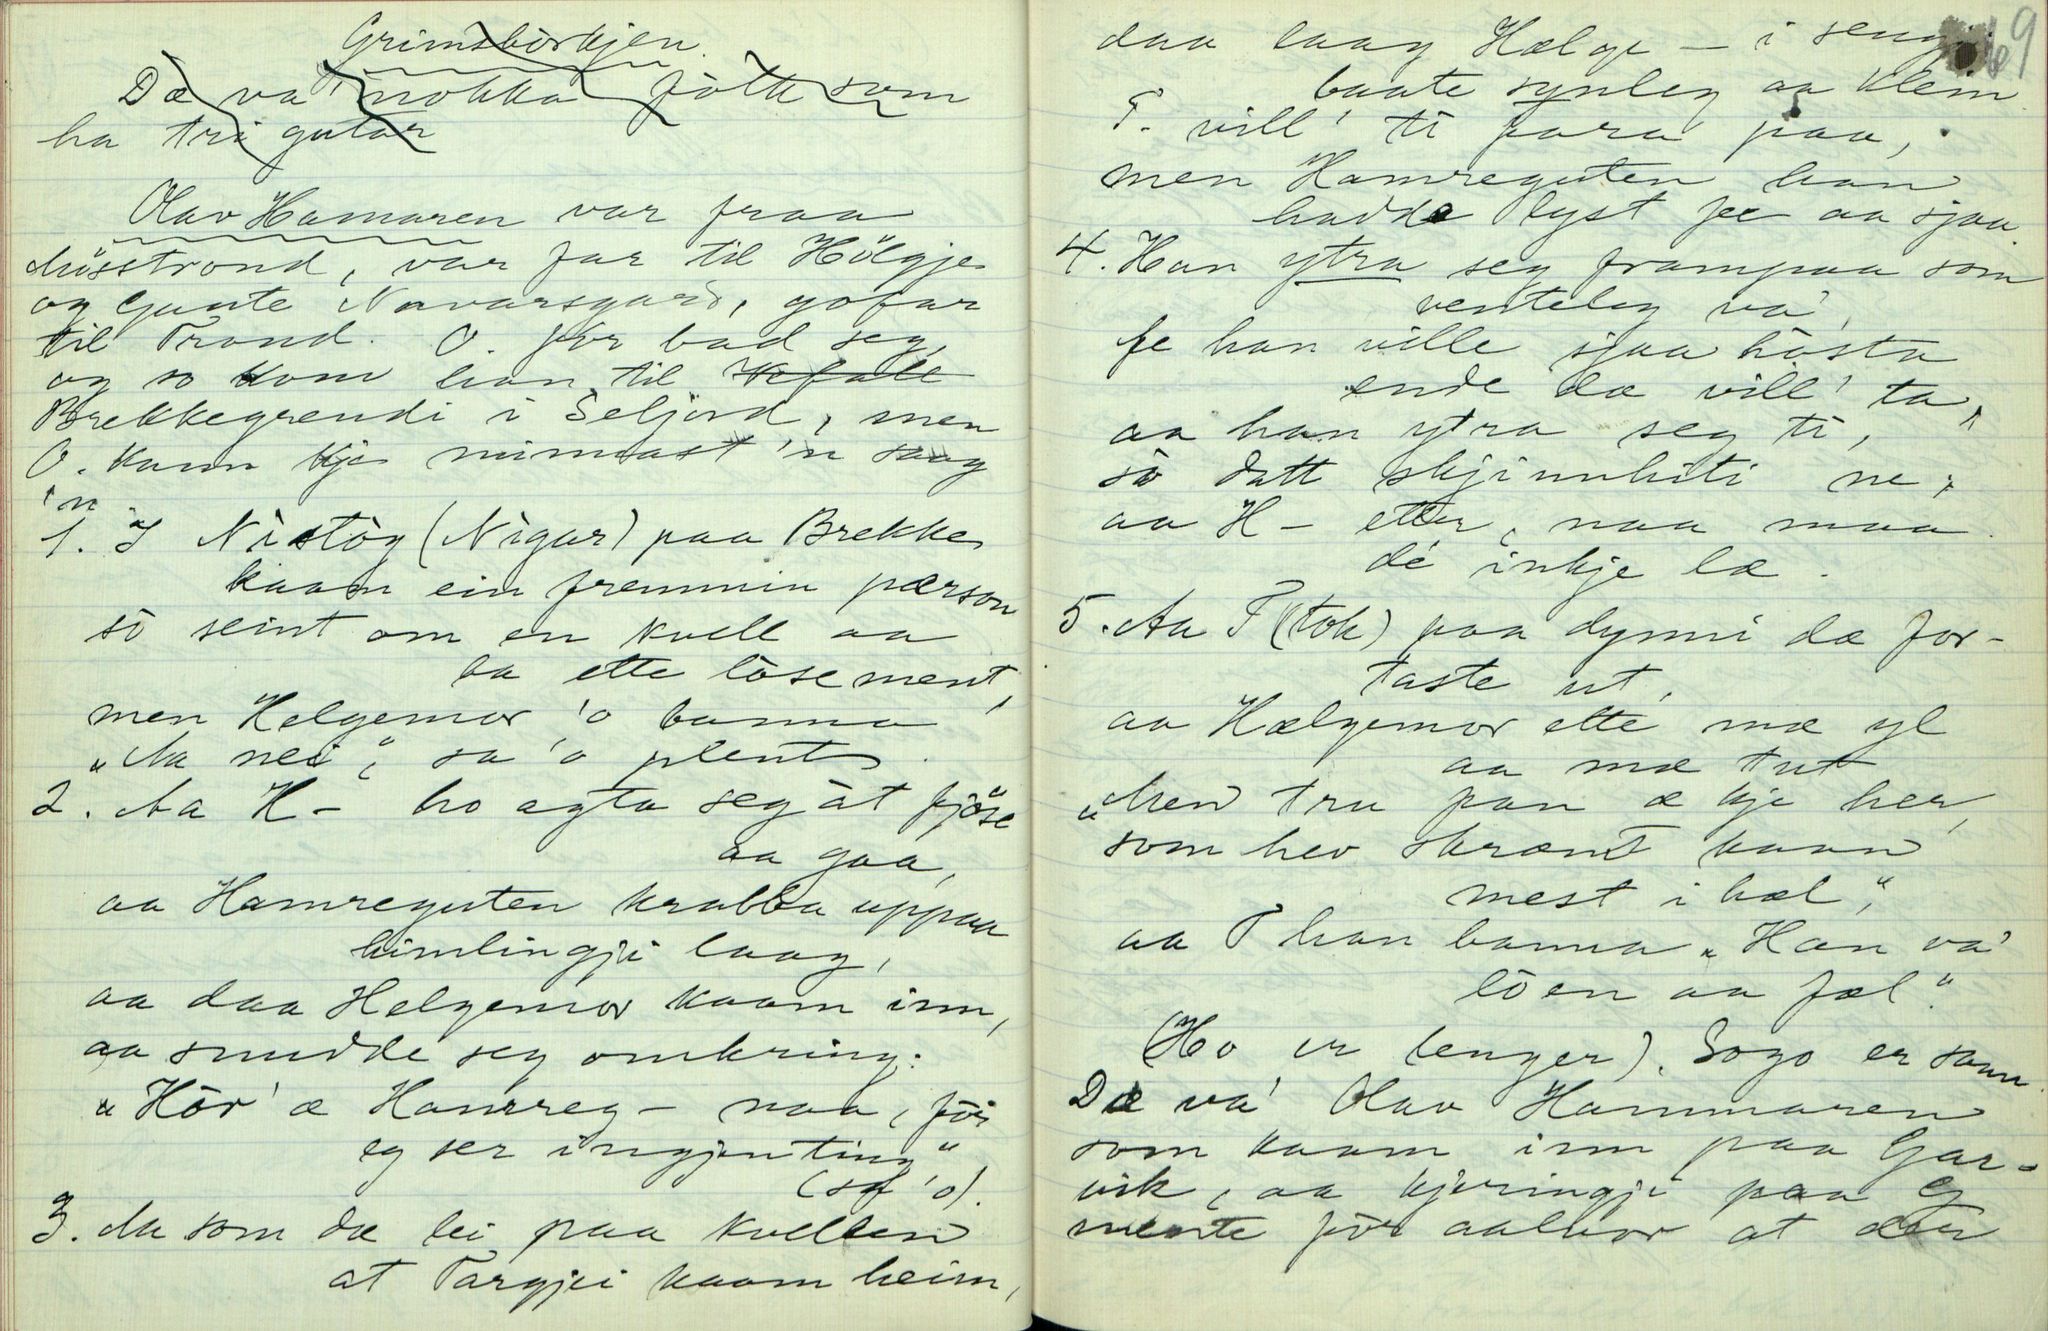 Grimsborkjen.
Dæ va nokka fòlk som
ha tri gutar
Olav Hamaren var fraa
Møsstrond, var far til Hölgje
og Gunte Navarsgard, gofar
til Trond. O. for bad seg
og so kom han til
Brekkegrendi i Seljord, men
O. kann kje minnast 'n saag
'n.
1. I Nistòg (Nigar) paa Brekke
kaam ein fremmin pærson
sò seint om en kvell aa
ba ette lòsement,
men Helgemor 'o banna
„Aa nei," sa 'o plent.
2. Aa H – ho agta seg àt fjöse
aa gaa,
aa Hamreguten krabba uppaa
himlingji laag,
aa daa Helgemor kaam inn,
aa snudde seg omkring.
„Hòr' æ Hamreg – naa, fòr
eg ser ingjenting"
(sa 'o).
3. Aa som dæ lei paa kvellen
at Targjei kaam heim,
69
daa laag Hælge – i seng
baate synleg aa klein.
T. vill' ti fara paa,
men Hamreguten han
hadde lyst fe aa sjaa.
4. Han ytra seg frampaa som
venteleg va',
fe han ville sjaa hòsta
ende dæ vill' ta,
aa han ytra seg ti,
sò datt skjinnhiti ne,
aa H – etter, naa maa
dé inkje læ.
5. Aa T (tok) paa dynni dæ for-
taste ut,
aa Hælgemor ette mæ yl
aa mæ tut
„Men tru pan æ kje her,
som hev skræmt kaan
mest i hæl,"
aa T han banna „Han va'
lòen aa fæl."
(Ho er lenger). Sogo er sann.
Dæ va' Olav Hammaren
som kaam inn paa Gar-
vik, aa kjeringji paa G
mente fòr aalvor at den